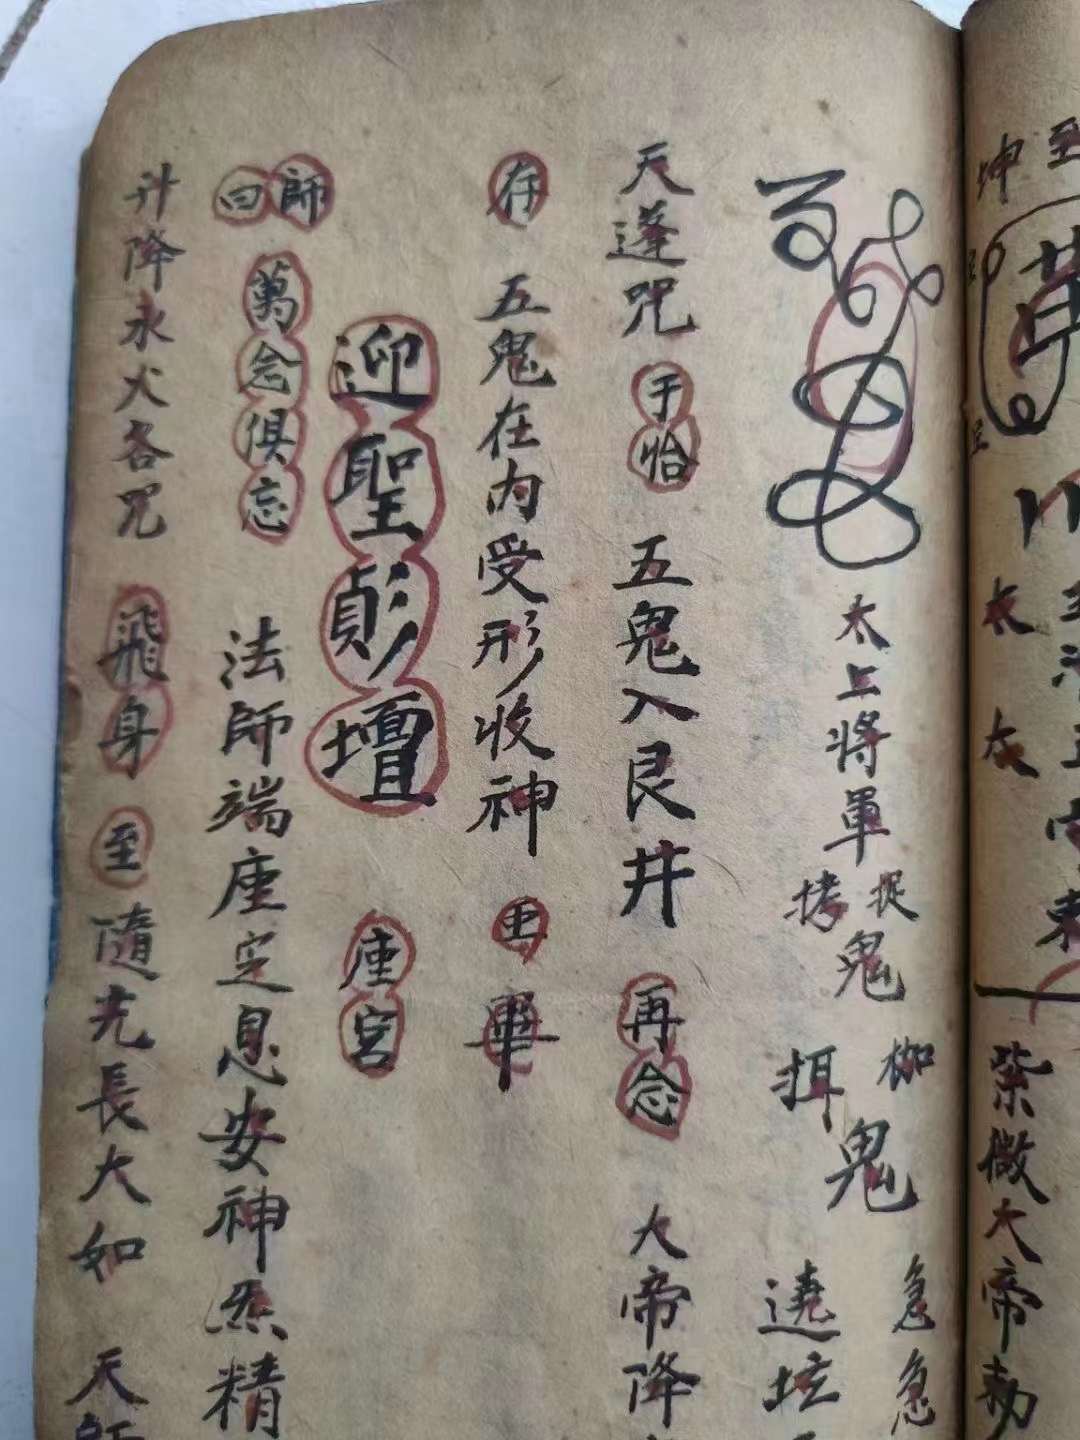 坤
紫微大帝勅
太上將軍
捉
拷鬼
枷
鬼
遶
急急
天蓬咒 于 五鬼入艮井 再念 大帝降
存 五鬼在內受形收神 畢
迎聖 壇 座宮
師曰 萬念俱忘 法師端座定息安神 精
升降永火各咒 飛身 至 隨光長大如 天師